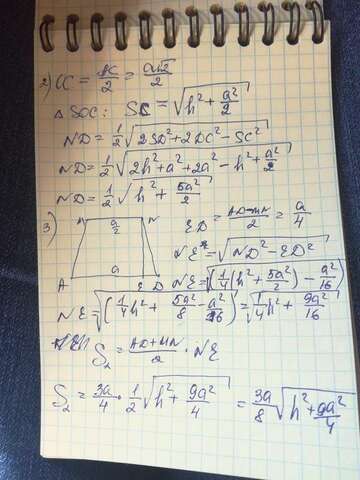 2) OC = AC/2 = a√2/2
△ SOC: SC = √(h² + a²/2)
ND = 1/2 √(2SD² + 2DC² - SC²)
ND = 1/2 √(2h² + a² + 2a² - h² + a²/2)
ND = 1/2 √(h² + 5a²/2)
3) M N
a/2
ED = (AD - MN)/2 = a/4
NE = √(ND² - ED²)
a
A E D NE = √(1/4(h² + 5a²/2) - a²/16)
NE = √(1/4 h² + 5a²/8 - a²/16) = √(1/4 h² + 9a²/16)
S₂ = (AD + MN)/2 · NE
S₂ = 3a/4 · 1/2 √(h² + 9a²/4) = 3a/8 √(h² + 9a²/4)